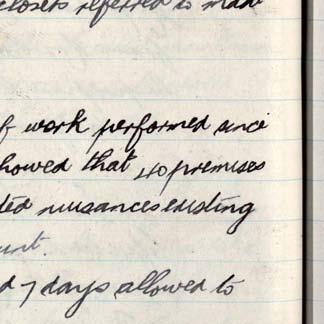 closets referred to made
of work performed since
howed that 40 premises
ted nuisances existing
unt.
d 7 days allowed to